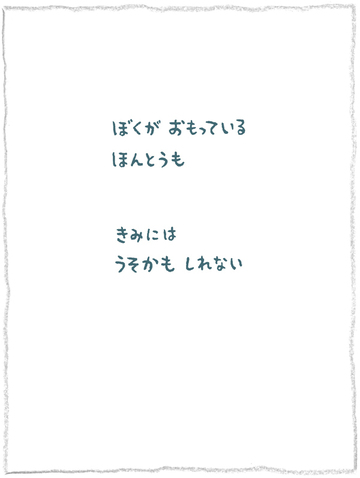 ぼくが おもっている
ほんとうも
きみには
うそかも しれない